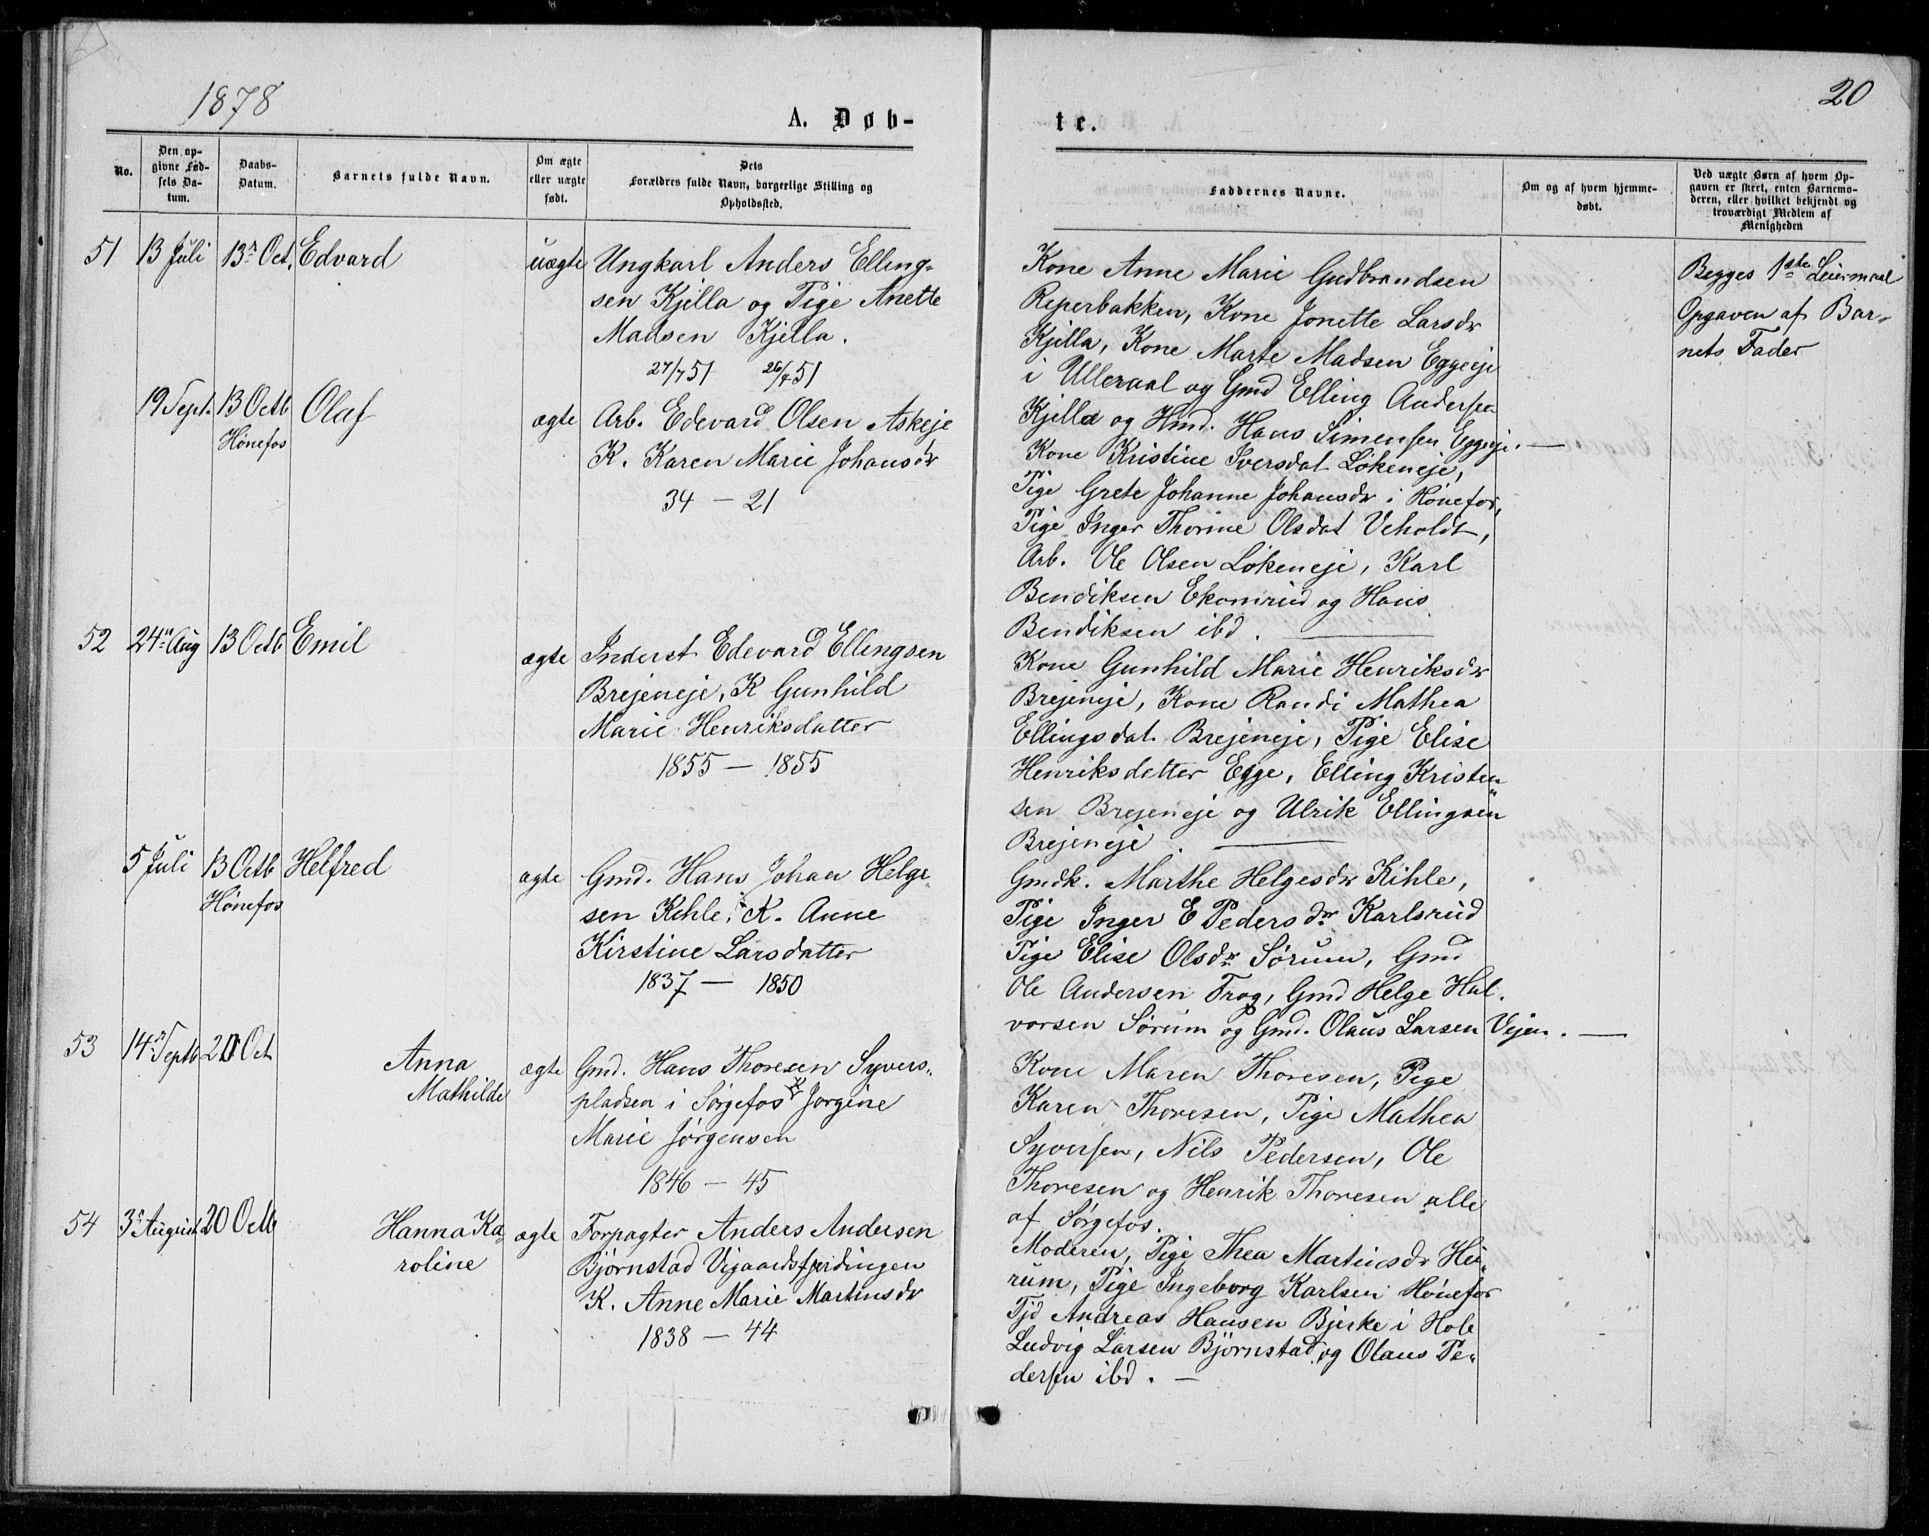 1878
A. Døb-
No.
Den op-
givne Fød-
sels Da-
tum.
Daabs-
Datum.
Barnets fulde Navn.
Om ægte
eller uægte
født.
Dets
Forældres fulde Navn, borgerlige Stilling og
Opholdssted.
51 13 Juli 13n Oct. Edvard uægte Ungkarl Anders Elling-
sen Kjilla og Pige Anette
Madsen Kjella.
27/7 51 26/4 51
19 Sept. 13 Octb Olaf ægte Arb. Edevard Olsen Askeje
Hønefos K. Karen Marie Johansdr
34 — 21
52 24n Aug 13 Octb Emil ægte Inderst Edevard Ellingsen
Brejeneje, K Gunhild
Marie Henriksdatter
1855 — 1855
5 Juli 13 Octb Helfred ægte Gmd. Hans Johan Helge-
Hønefos sen Kihle, K. Anne
Kirstine Larsdatter
1837 — 1850
53 14n Septb 20 Oct Anna ægte Gmd. Hans Thoresen Syvers-
Mathilde pladsen i Sørgefos K Jørgine
Marie Jørgensen
1846 — 45
54 3n August 20 Octb Hanna Ka- ægte Forpagter Anders Andersen
roline Bjørnstad Vigaardsfjerdingen
K. Anne Marie Martinsdr
1838 — 44
20
te.
Faddernes Navne.
Om og af hvem hjemme-
døbt.
Ved uægte Børn af hvem Op-
gaven er skeet, enten Barnemo-
deren, eller hvilket bekjendt og
troværdigt Medlem af
Menigheden
Kone Anne Marie Gudbrandsen
Reperbakken, Kone Jonette Larsdr
Kjilla, Kone Marte Madsen Eggeeje
i Ulleraal og Gmd Elling Andersen
Kjilla og Hmd. Hans Simensen Eggeeje. —
Begges 1ste Leiermaal
Opgaven af Bar-
nets Fader
Kone Kristine Iversdat. Løkeneje,
Pige Grete Johanne Johansdr i Hønefos,
Pige Inger Thorine Olsdat Veholdt,
Arb. Ole Olsen Løkeneje, Karl
Bendiksen Ekornrud og Hans
Bendiksen ibd. —
Kone Gunhild Marie Henriksdr
Brejeneje, Kone Randi Mathea
Ellingsdat. Brejeneje, Pige Elise
Henriksdatter Egge, Elling Kristen-
sen Brejeneje og Ulrik Ellingsen
Brejeneje. —
Gmdk. Marthe Helgesdr Kihle,
Pige Inger E Pedersdr Karlsrud
Pige Elise Olsdr Sørum, Gmd
Ole Andersen Trog, Gmd Helge Hal-
vorsen Sørum og Gmd. Olaus Larsen Vejen. —
Kone Maren Thoresen, Pige
Karen Thoresen, Pige Mathea
Syversen, Nils Pedersen, Ole
Thoresen og Henrik Thoresen alle
af Sørgefos.
Moderen, Pige Thea Martinsdr Hei-
rum, Pige Ingeborg Karlsen Hønefos
Tjd Andreas Hansen Bjerke i Hole
Ludvig Larsen Bjørnstad og Olaus Pe-
dersen ibd. —